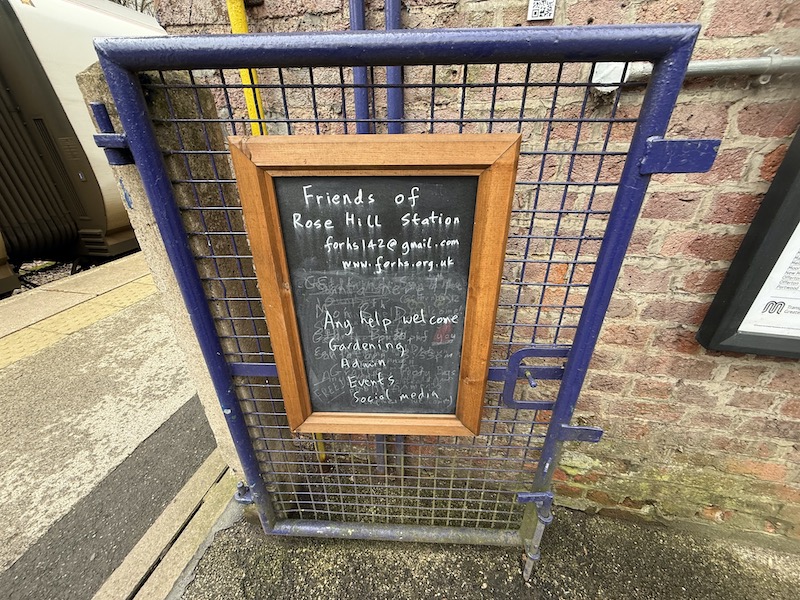 Friends of
Rose Hill Station
forhs142@gmail.com
www.forhs.org.uk
Any help welcome
Gardening
Admin
Events
Social media